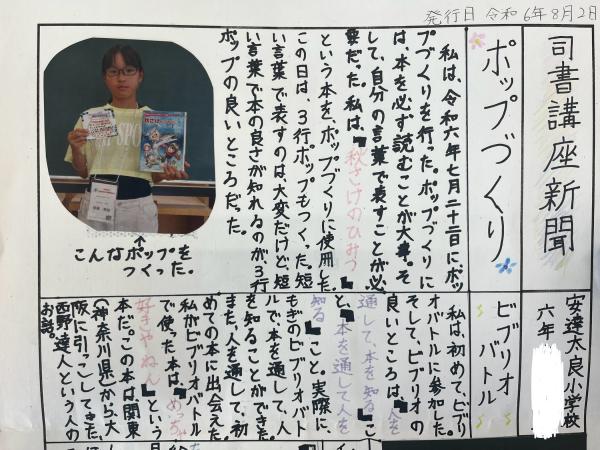 発行日 令和 6年8月2日
司書講座新聞
安達太良小学校
六年
ポップづくり
私は、令和六年七月二十二日にポッ
プづくりを行った。ポップづくりに
は、本を必ず読むことが大事。そ
して、自分の言葉で表すことが必
要だった。私は、「秋さけのひみつ」
という本を、ポップづくりに使用した。
この日は、3行ポップもつくった。短
い言葉で表すのは、大変だけど、短
い言葉で本の良さが知れるのが3行
ポップの良いところだった。
こんなポップを
つくった。
ビブリオ
バトル
私は、初めて、ビブリ
オバトルに参加した。
そして、ビブリオの
良いところは、「人を
通して、本を知る」こ
と、「本を通して人を
知る」こと。実際に、
もぎのビブリオバト
ルで本を通して、人
を知ることができた。
また、人を通して、初
めての本に出会えた。
私がビブリオバトル
で使った本は、「めっちゃ
好きやねん」という
本だ。この本は、関東
(神奈川県)から大
阪に引っこしてきた、
西野達人という人の
お話。